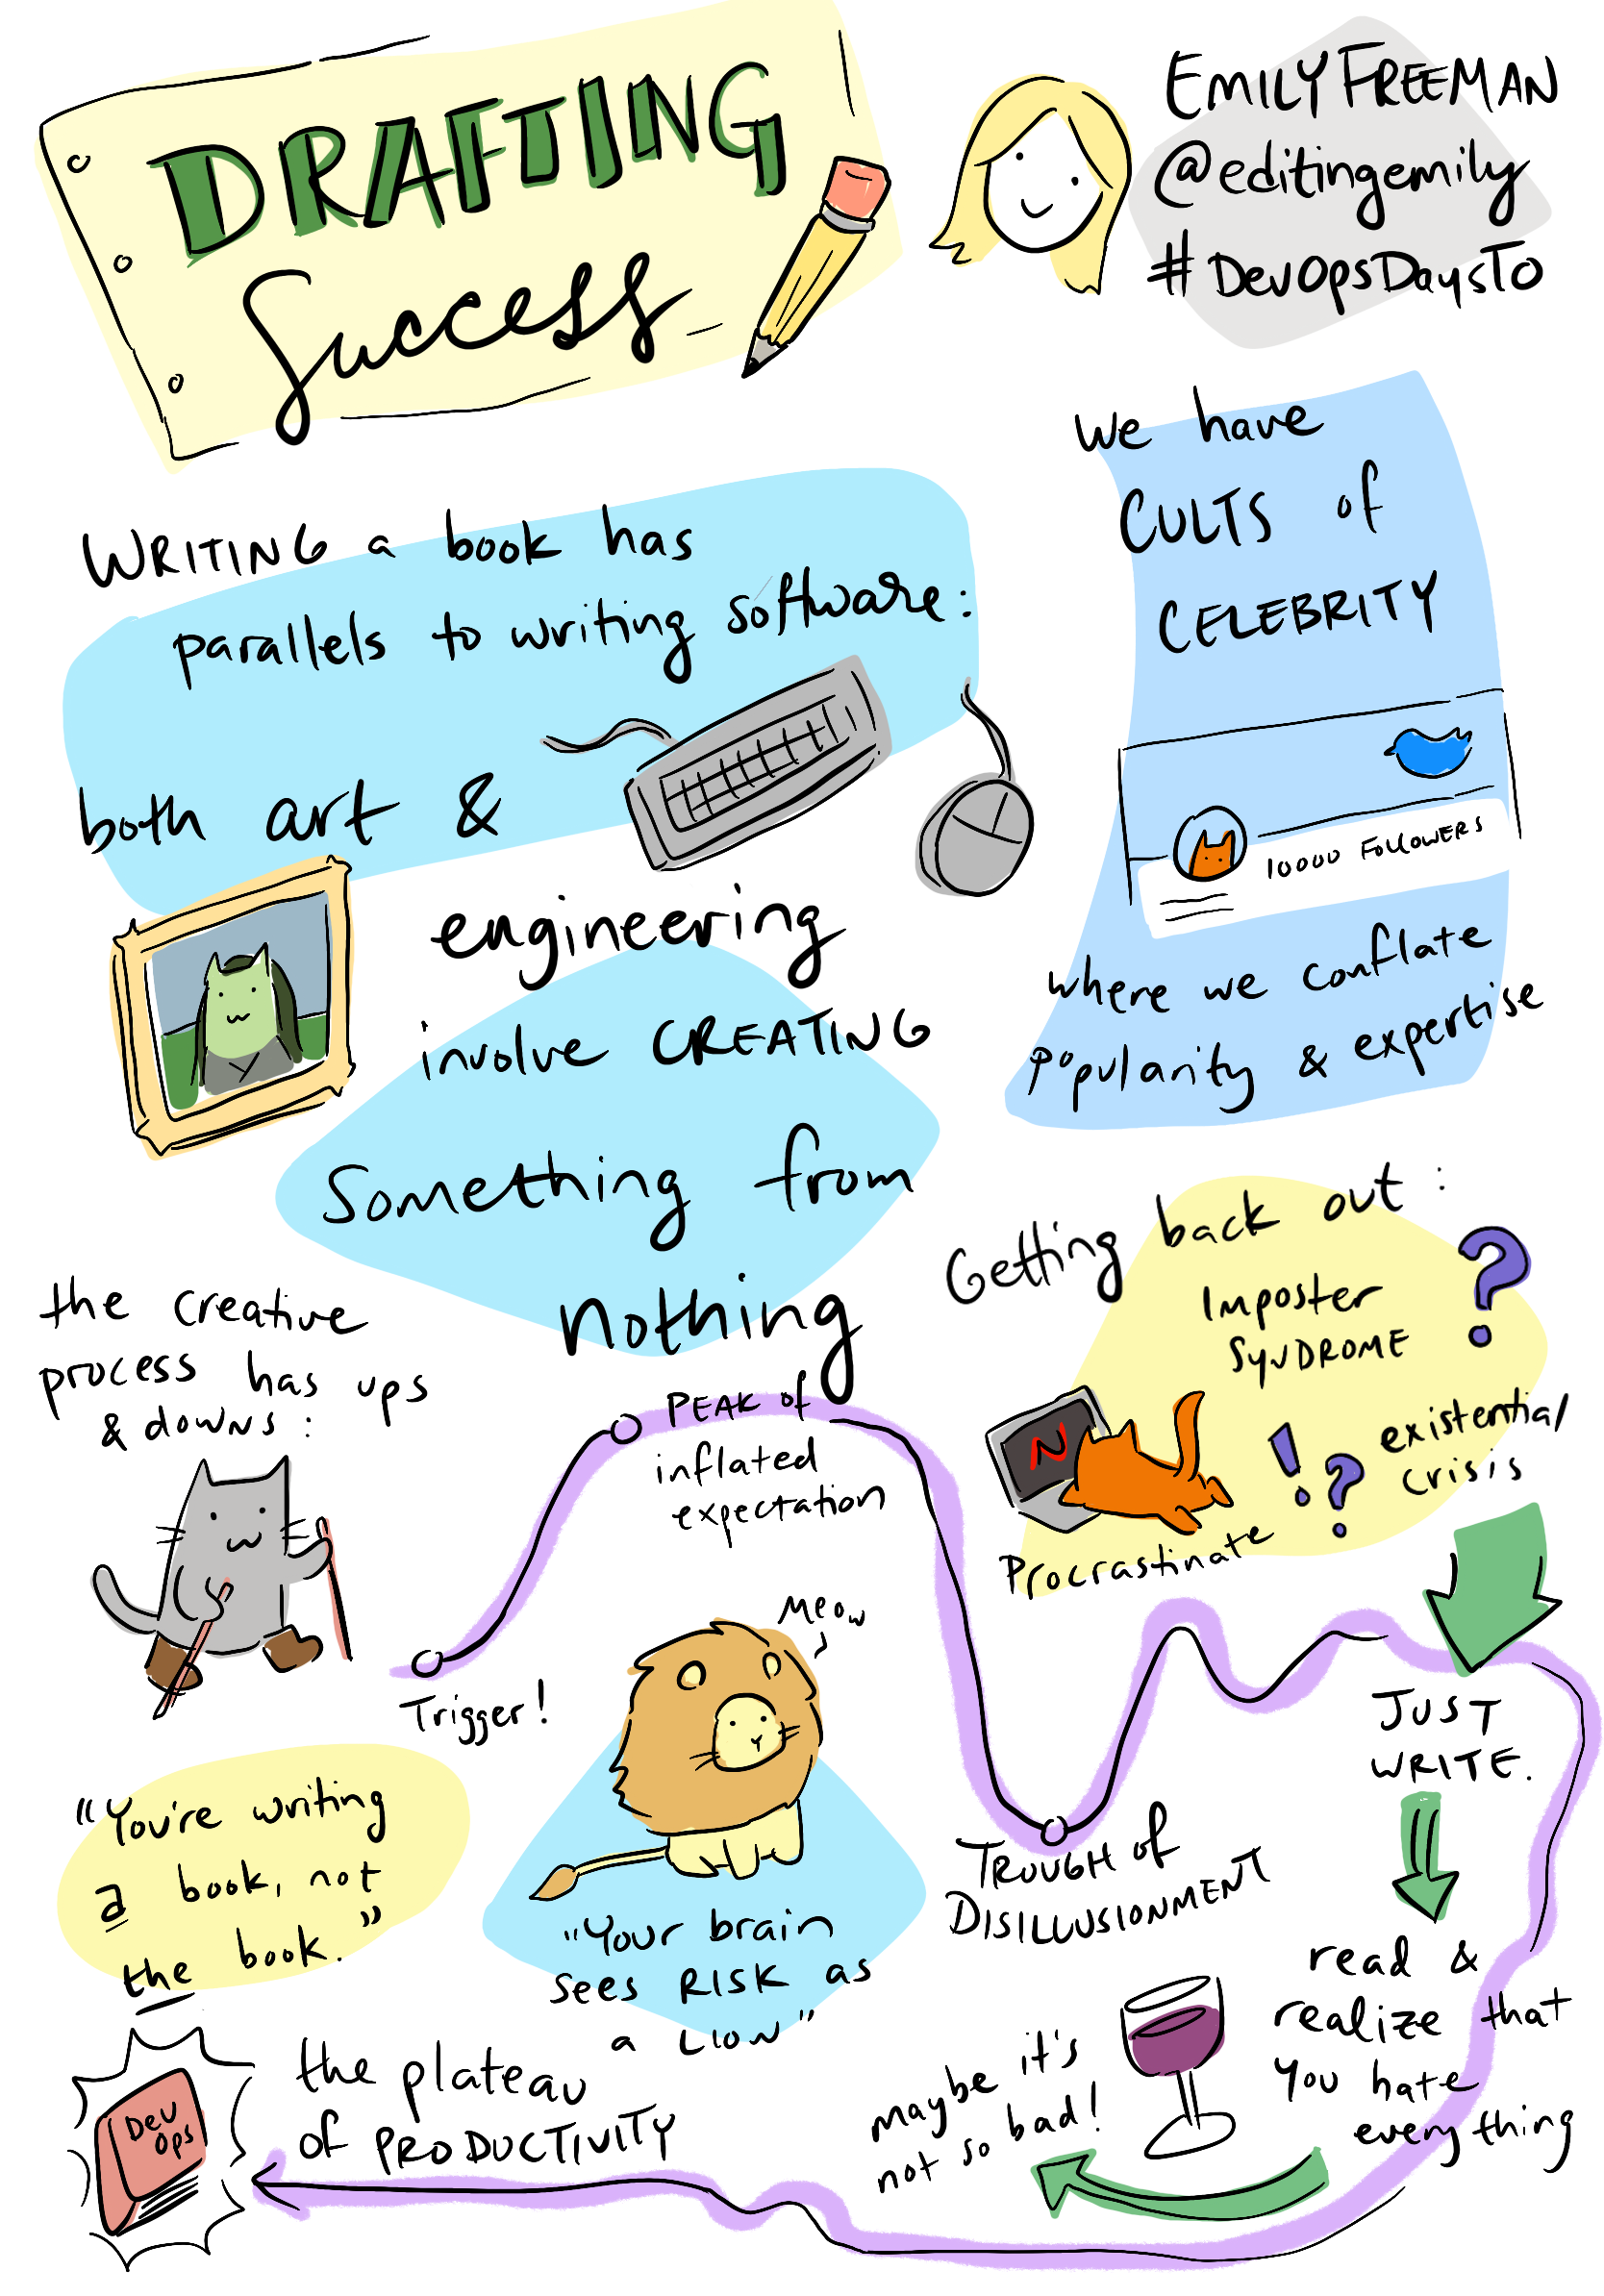 DRAFTING
Success
EMILY FREEMAN
@editingemily
#DevOpsDaysTO
We have
CULTS of
CELEBRITY
10000 FOLLOWERS
where we conflate
popularity & expertise
WRITING a book has
parallels to writing software:
both art &
engineering
involve CREATING
Something from
nothing
the creative
process has ups
& downs:
Trigger!
PEAK of
inflated
expectation
TROUGH of
DISILLUSIONMENT
Getting back out:
IMPOSTER
SYNDROME ?
N
!?
existential
crisis
Procrastinate
JUST
WRITE.
read &
realize that
you hate
everything
maybe it's
not so bad!
Meow
"Your brain
sees RISK as
a LION"
"You're writing
a book, not
the book."
the plateau
of PRODUCTIVITY
Dev
Ops